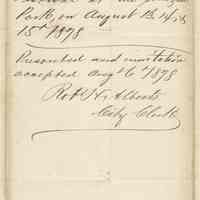 Park, on August 13, 14, &
15th 1878
Presented and invitation
accepted Augt 6th 1878
Robt H. Alberts
City Clerk